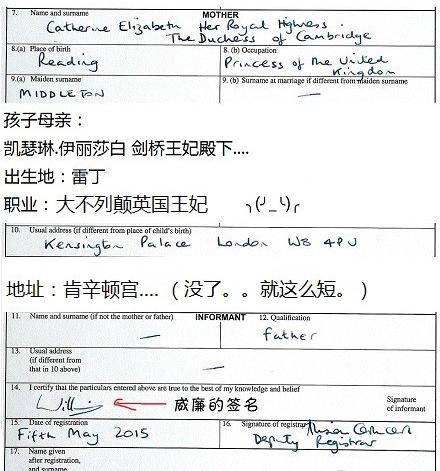 7. Name and surname MOTHER
Catherine Elizabeth Her Royal Highness
The Duchess of Cambridge
8.(a) Place of birth 8. (b) Occupation
Reading Princess of the United
Kingdom
9.(a) Maiden surname 9. (b) Surname at marriage if different from maiden surname
MIDDLETON —
孩子母亲：
凯瑟琳.伊丽莎白 剑桥王妃殿下....
出生地：雷丁
职业：大不列颠英国王妃
10. Usual address (if different from place of child's birth)
Kensington Palace London W8 4PU
地址：肯辛顿宫....（没了。。就这么短。）
11. Name and surname (if not the mother or father) INFORMANT 12. Qualification
— father
13. Usual address
(if different from
that in 10 above) —
14. I certify that the particulars entered above are true to the best of my knowledge and belief
威廉的签名 Signature
of informant
15. Date of registration 16. Signature of registrar
Fifth May 2015 Deputy Registrar
17. Name given
after registration,
and surname